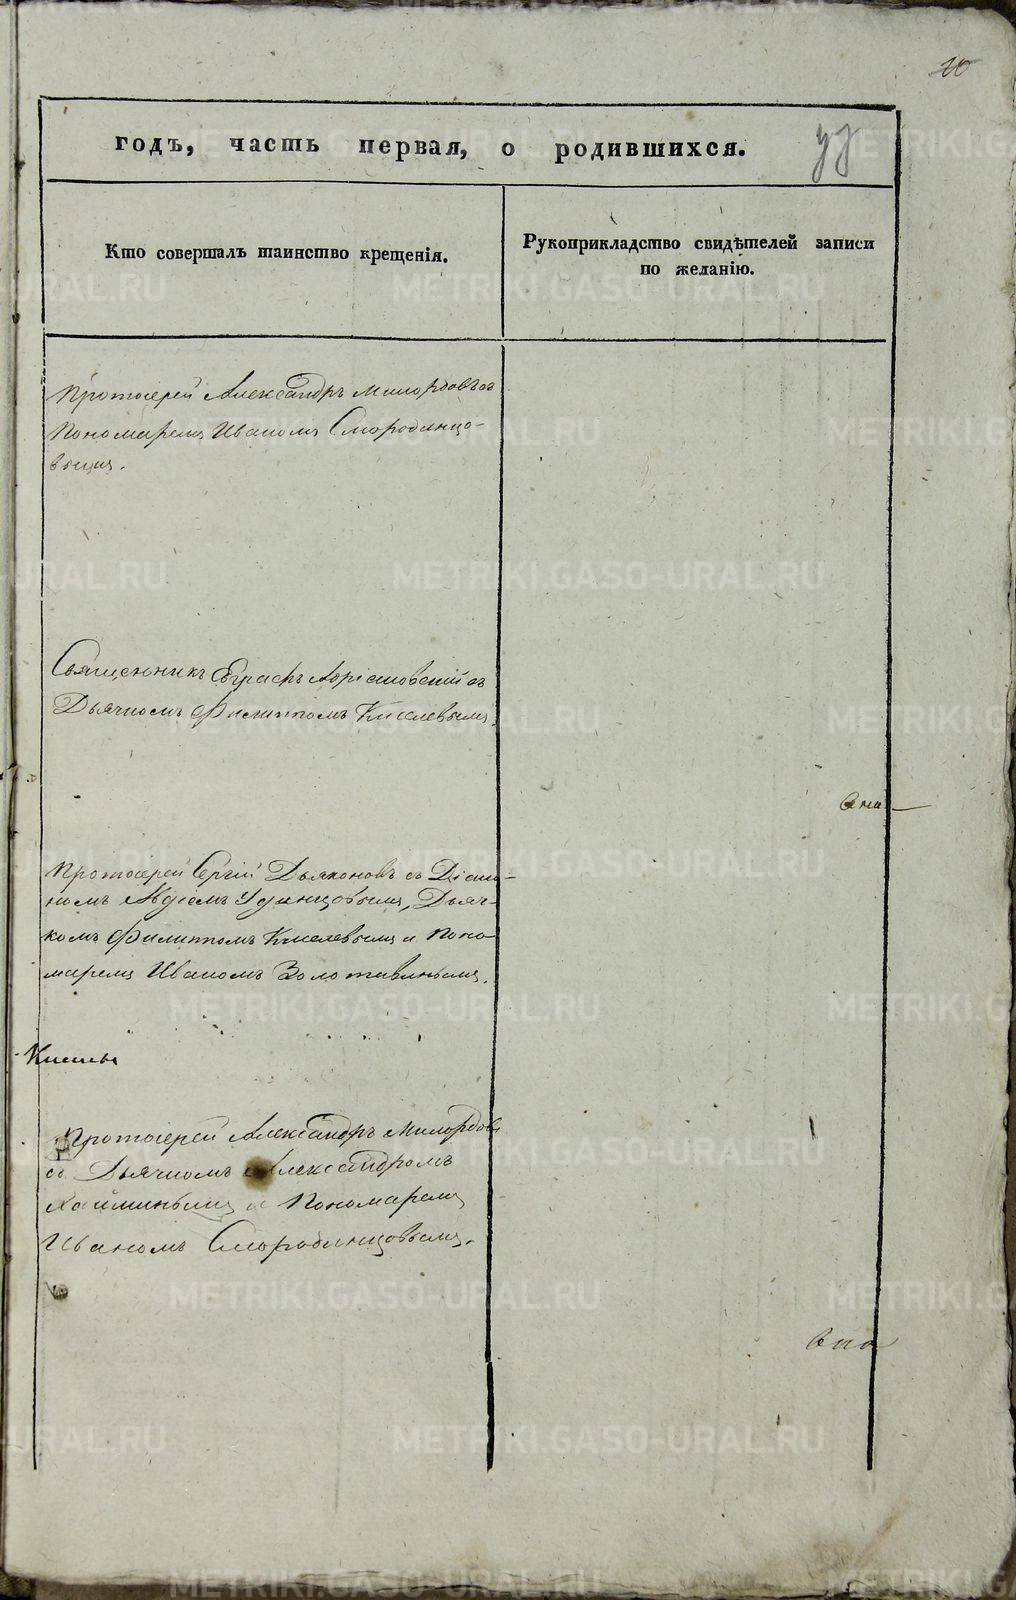 20
годъ, часть первая, о родившихся.
Кто совершалъ таинство крещенія.
Рукоприкладство свидѣтелей записи
по желанію.
Протоіерей Александръ Милордовъ съ
Пономаремъ Иваномъ Смородинцо-
вымъ.
Священникъ съ
Дьячкомъ Филиппомъ Киселевымъ.
Протоіерей Сергій Дьяконовъ съ Діако-
номъ Авдіемъ Удинцовымъ, Дьяч-
комъ Филиппомъ Киселевымъ и Поно-
маремъ Иваномъ Золотавинымъ.
Протоіерей Александръ Милордовъ
съ Дьячкомъ Александромъ
Хайминымъ и Пономаремъ
Иваномъ Смородинцовымъ.
METRIKI.GASO-URAL.RU